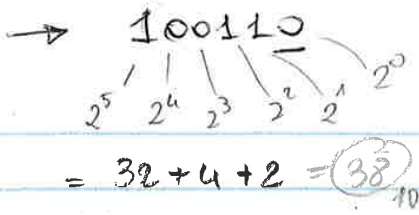 → 100110
2⁵ 2⁴ 2³ 2² 2¹ 2⁰
= 32 + 4 + 2 = 38